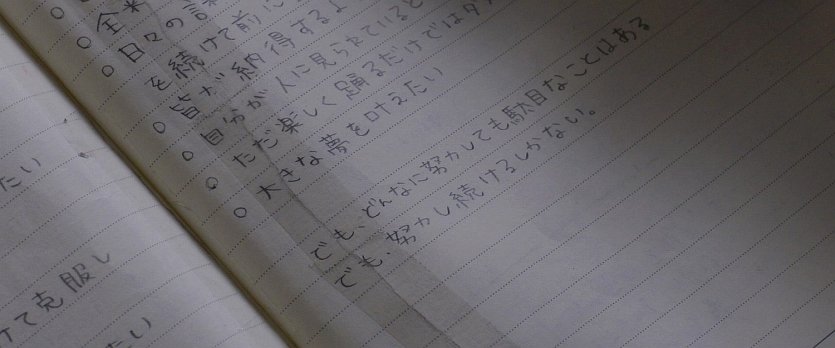 たい
けて克服し
たい
全
日々の
を続けて前に
皆が納得するよ
自分が人に見られていると
ただ楽しく踊るだけではダ
大きな夢を叶えたい
でも、どんなに努力しても駄目なことはある
でも、努力し続けるしかない。